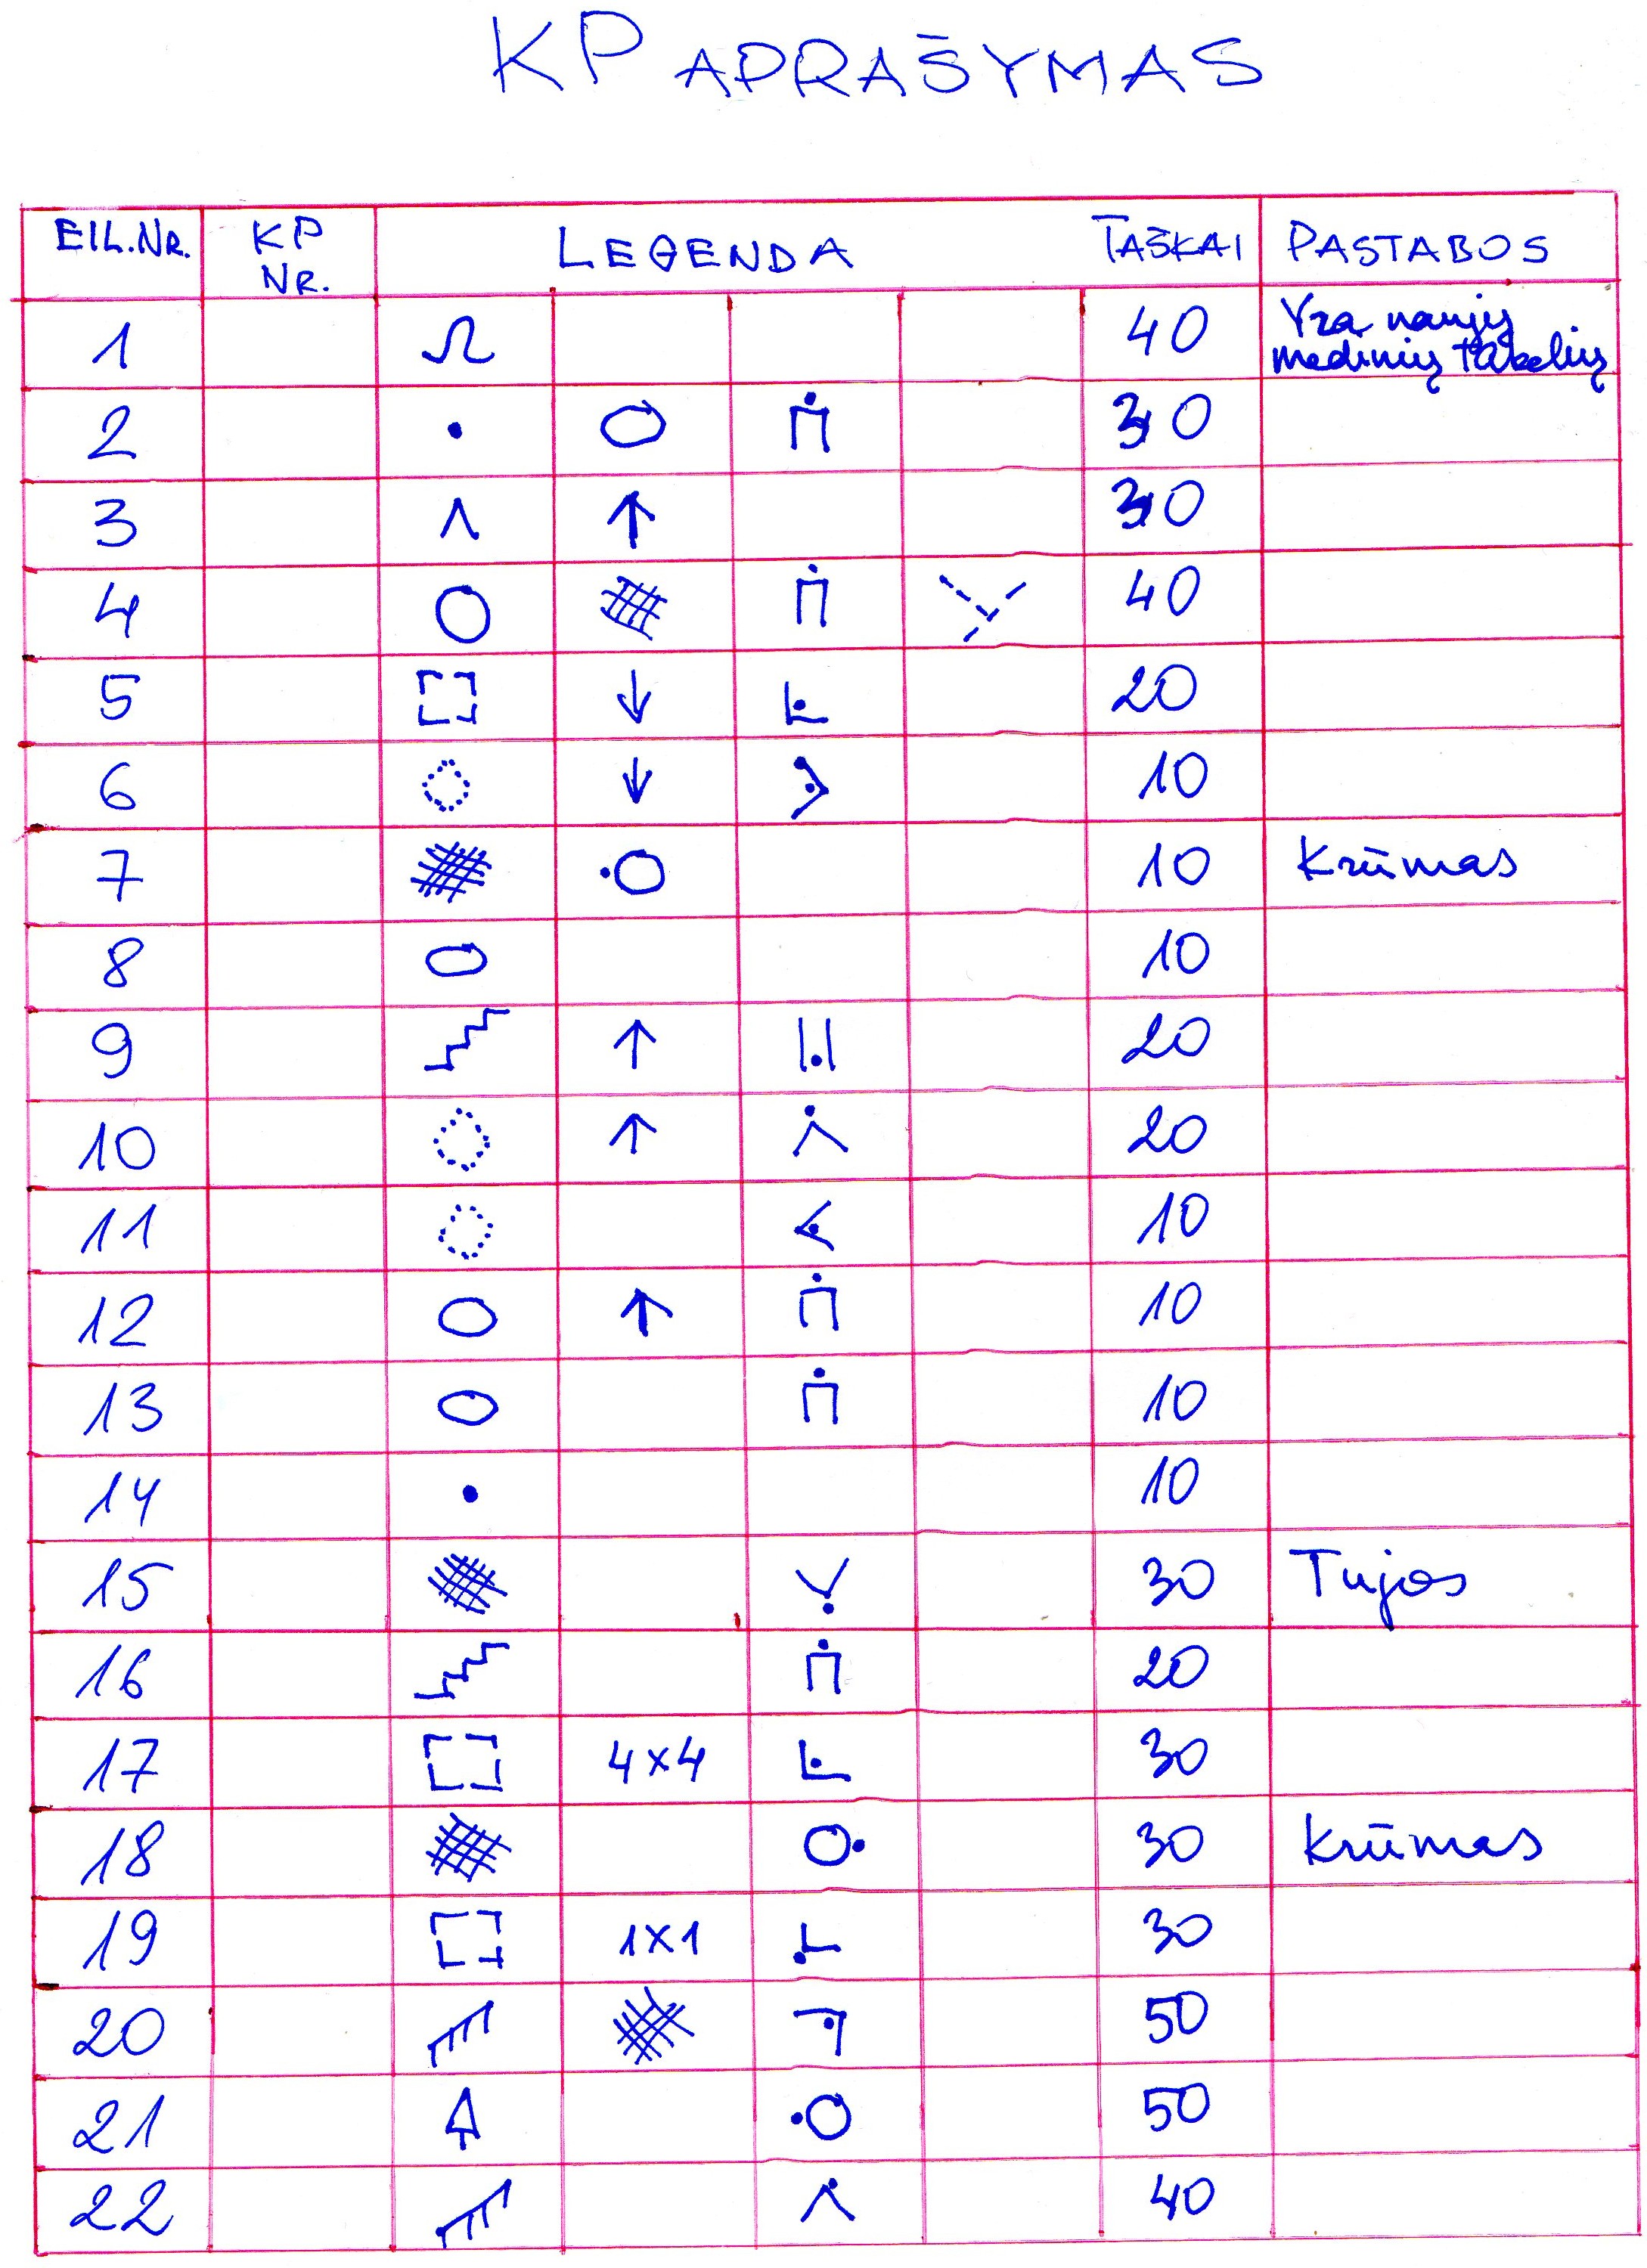 KP APRAŠYMAS
EIL.NR. KP NR. LEGENDA TAŠKAI PASTABOS
1 40 Yra naujų medinių takelių
2 30
3 30
4 40
5 20
6 10
7 10 Krūmas
8 10
9 20
10 20
11 10
12 10
13 10
14 10
15 30 Tujos
16 20
17 4x4 30
18 30 Krūmas
19 1x1 30
20 50
21 50
22 40